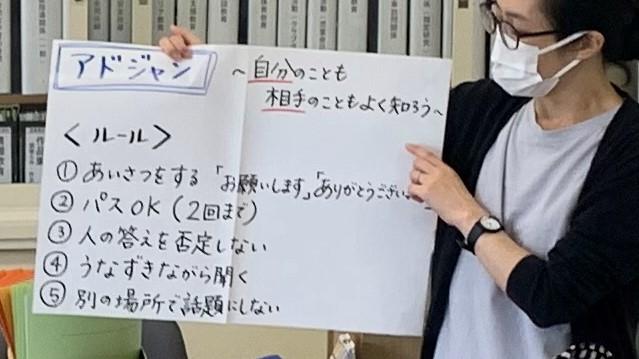 アドジャン
～自分のことも
相手のこともよく知ろう～
＜ルール＞
① あいさつをする「お願いします」「ありがとうござい
② パスOK（2回まで）
③ 人の答えを否定しない
④ うなずきながら聞く
⑤ 別の場所で話題にしない